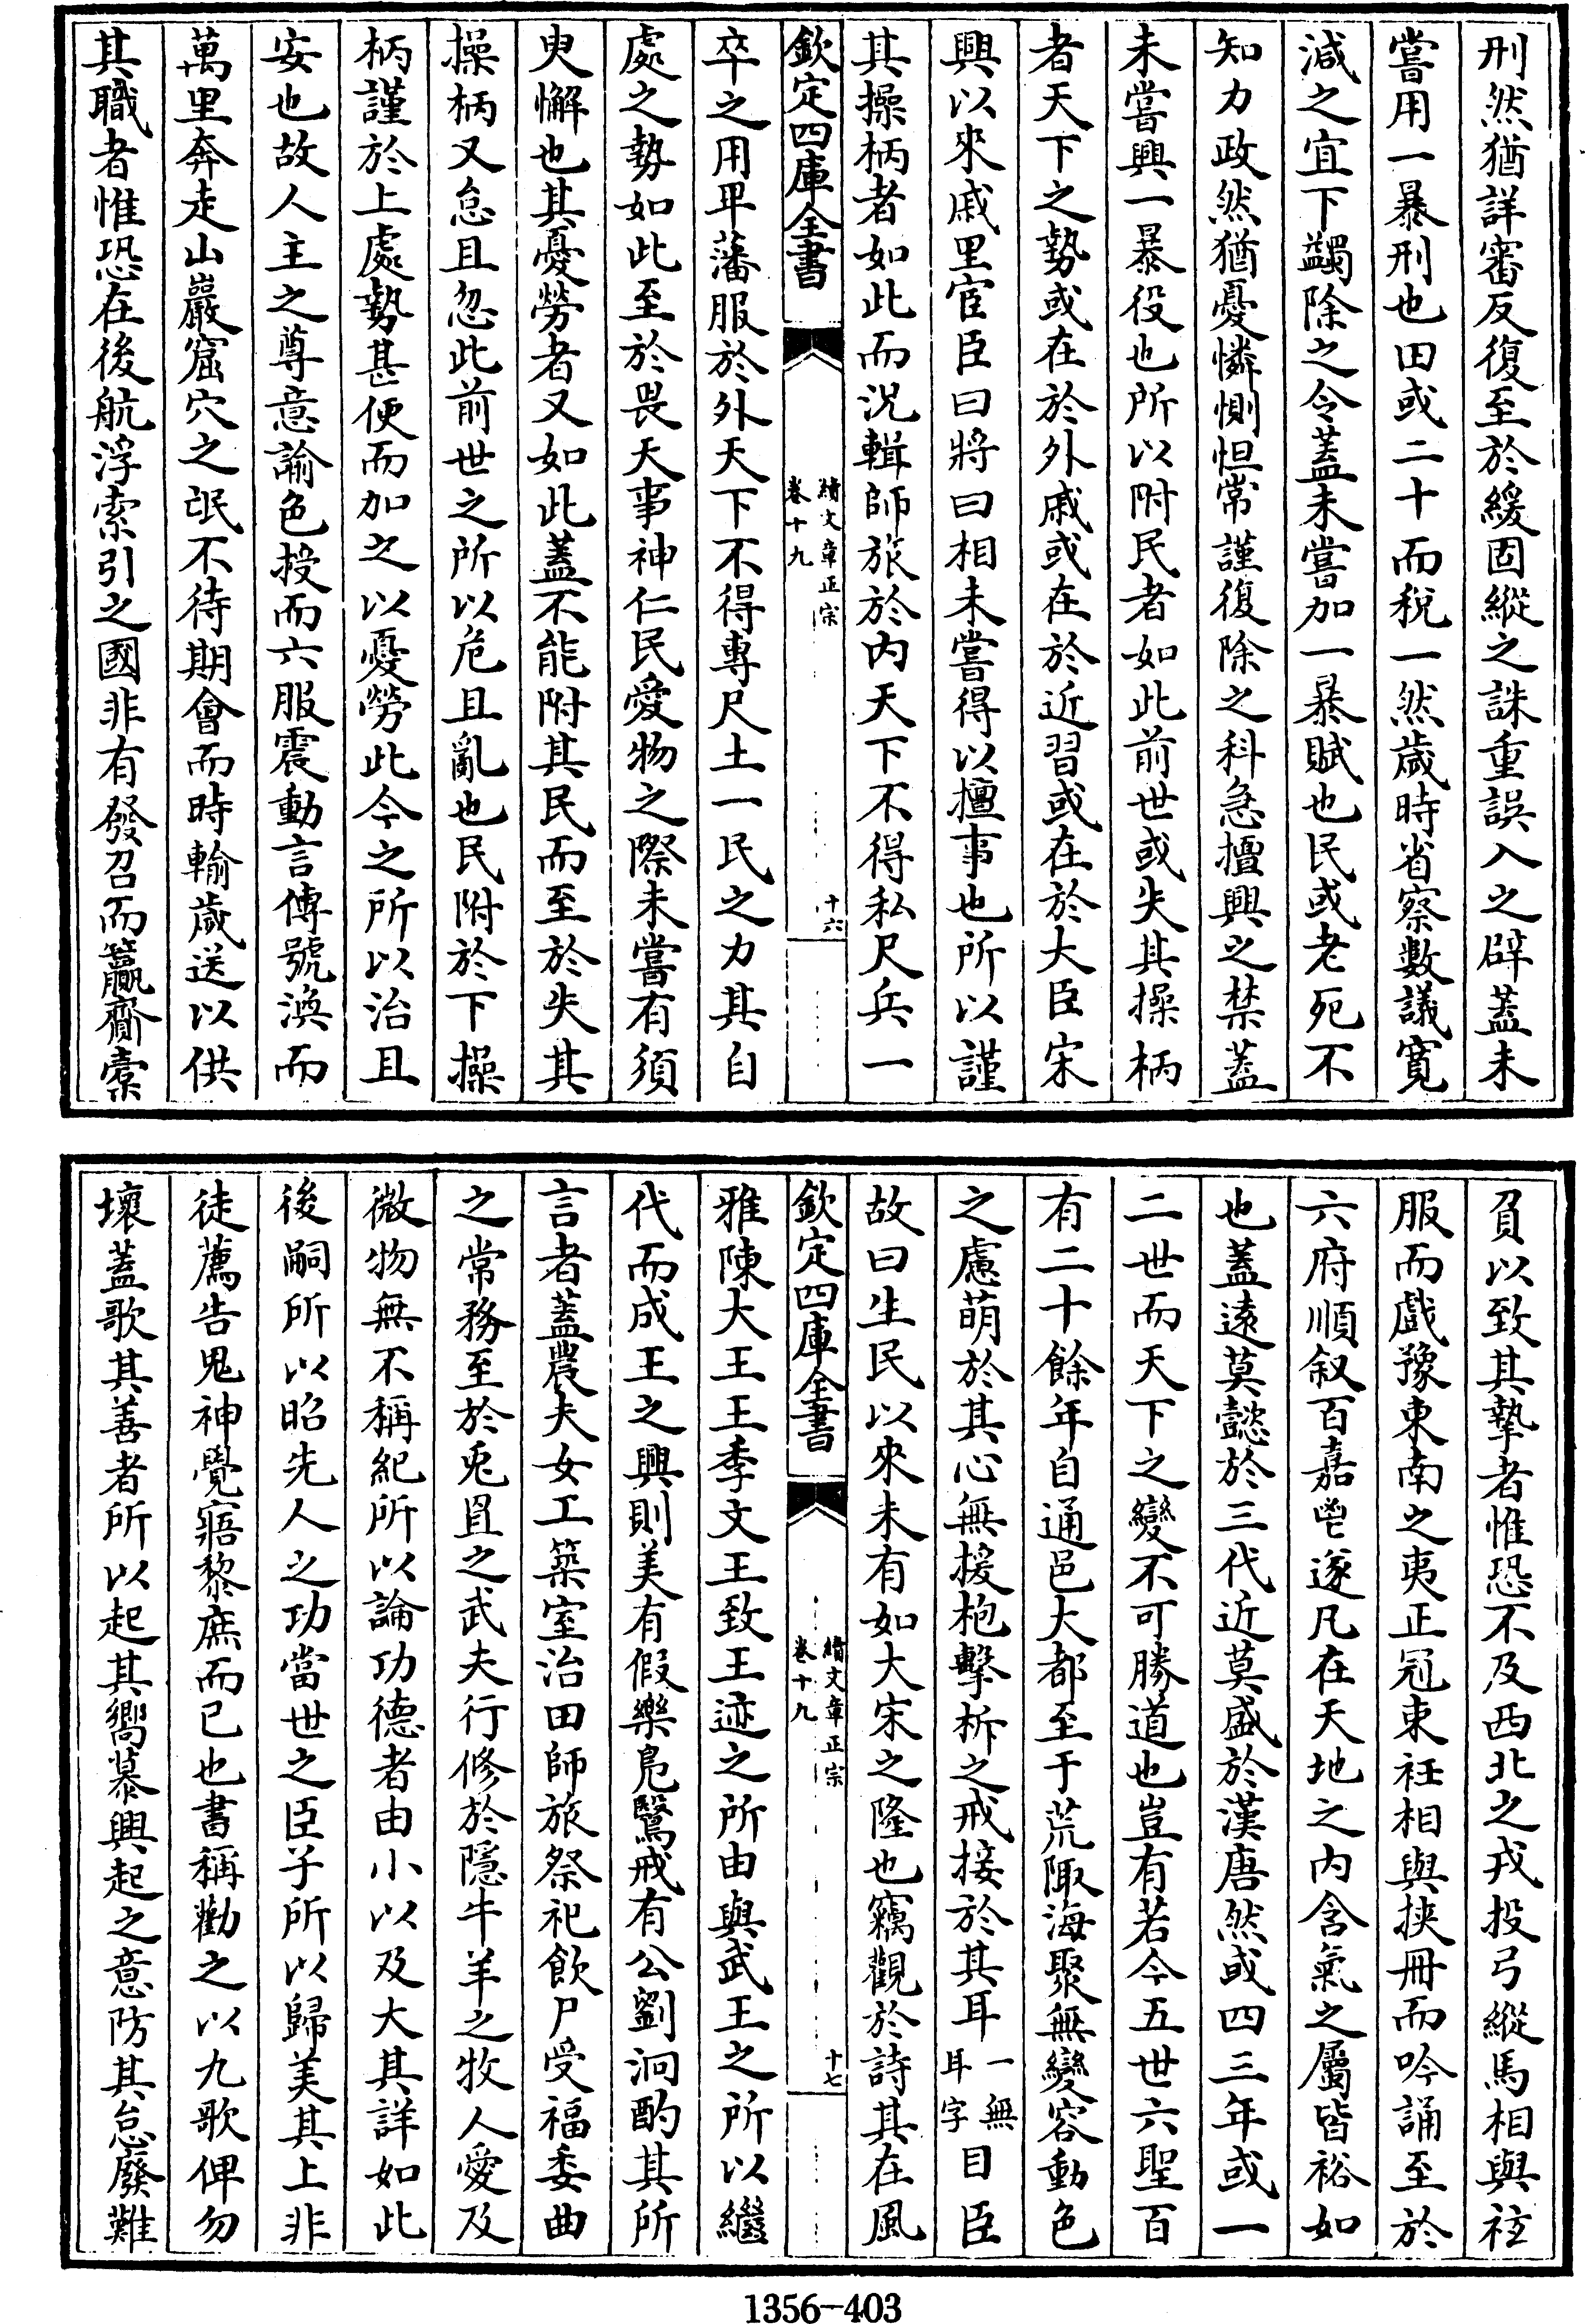 刑然猶詳審反復至於緩固縱之誅重誤入之辟蓋未
嘗用一暴刑也田或二十而稅一然歲時省察數議寬
減之宜下蠲除之令蓋未嘗加一暴賦也民或老死不
知力政然猶憂憐惻怛常謹復除之科急擅興之禁蓋
未嘗興一暴役也所以附民者如此前世或失其操柄
者天下之勢或在於外戚或在於近習或在於大臣宋
興以來戚里宦臣曰將曰相未嘗得以擅事也所以謹
其操柄者如此而況輯師旅於內天下不得私尺兵一
欽定四庫全書
續文章正宗
卷十九
十六
卒之用卑藩服於外天下不得專尺土一民之力其自
處之勢如此至於畏天事神仁民愛物之際未嘗有須
臾懈也其憂勞者又如此蓋不能附其民而至於失其
操柄又怠且忽此前世之所以危且亂也民附於下操
柄謹於上處勢甚便而加之以憂勞此今之所以治且
安也故人主之尊意諭色授而六服震動言傳號渙而
萬里奔走山巖窟穴之氓不待期會而時輸歲送以供
其職者惟恐在後航浮索引之國非有發召而籯齎橐
負以致其摯者惟恐不及西北之戎投弓縱馬相與袨
服而戲豫東南之夷正冠束衽相與挾冊而吟誦至於
六府順敘百嘉鬯遂凡在天地之內含氣之屬皆裕如
也蓋遠莫懿於三代近莫盛於漢唐然或四三年或一
二世而天下之變不可勝道也豈有若今五世六聖百
有二十餘年自通邑大都至于荒陬海聚無變容動色
之慮萌於其心無援枹擊柝之戒接於其耳一無耳字目臣
故曰生民以來未有如大宋之隆也竊觀於詩其在風
欽定四庫全書
續文章正宗
卷十九
十七
雅陳大王王季文王致王迹之所由與武王之所以繼
代而成王之興則美有假樂鳧鷖戒有公劉泂酌其所
言者蓋農夫女工築室治田師旅祭祀飲尸受福委曲
之常務至於兎罝之武夫行修於隱牛羊之牧人愛及
微物無不稱紀所以論功德者由小以及大其詳如此
後嗣所以昭先人之功當世之臣子所以歸美其上非
徒薦告鬼神覺寤黎庶而已也書稱勸之以九歌俾勿
壞蓋歌其善者所以起其嚮慕興起之意防其怠廢難
1356-403